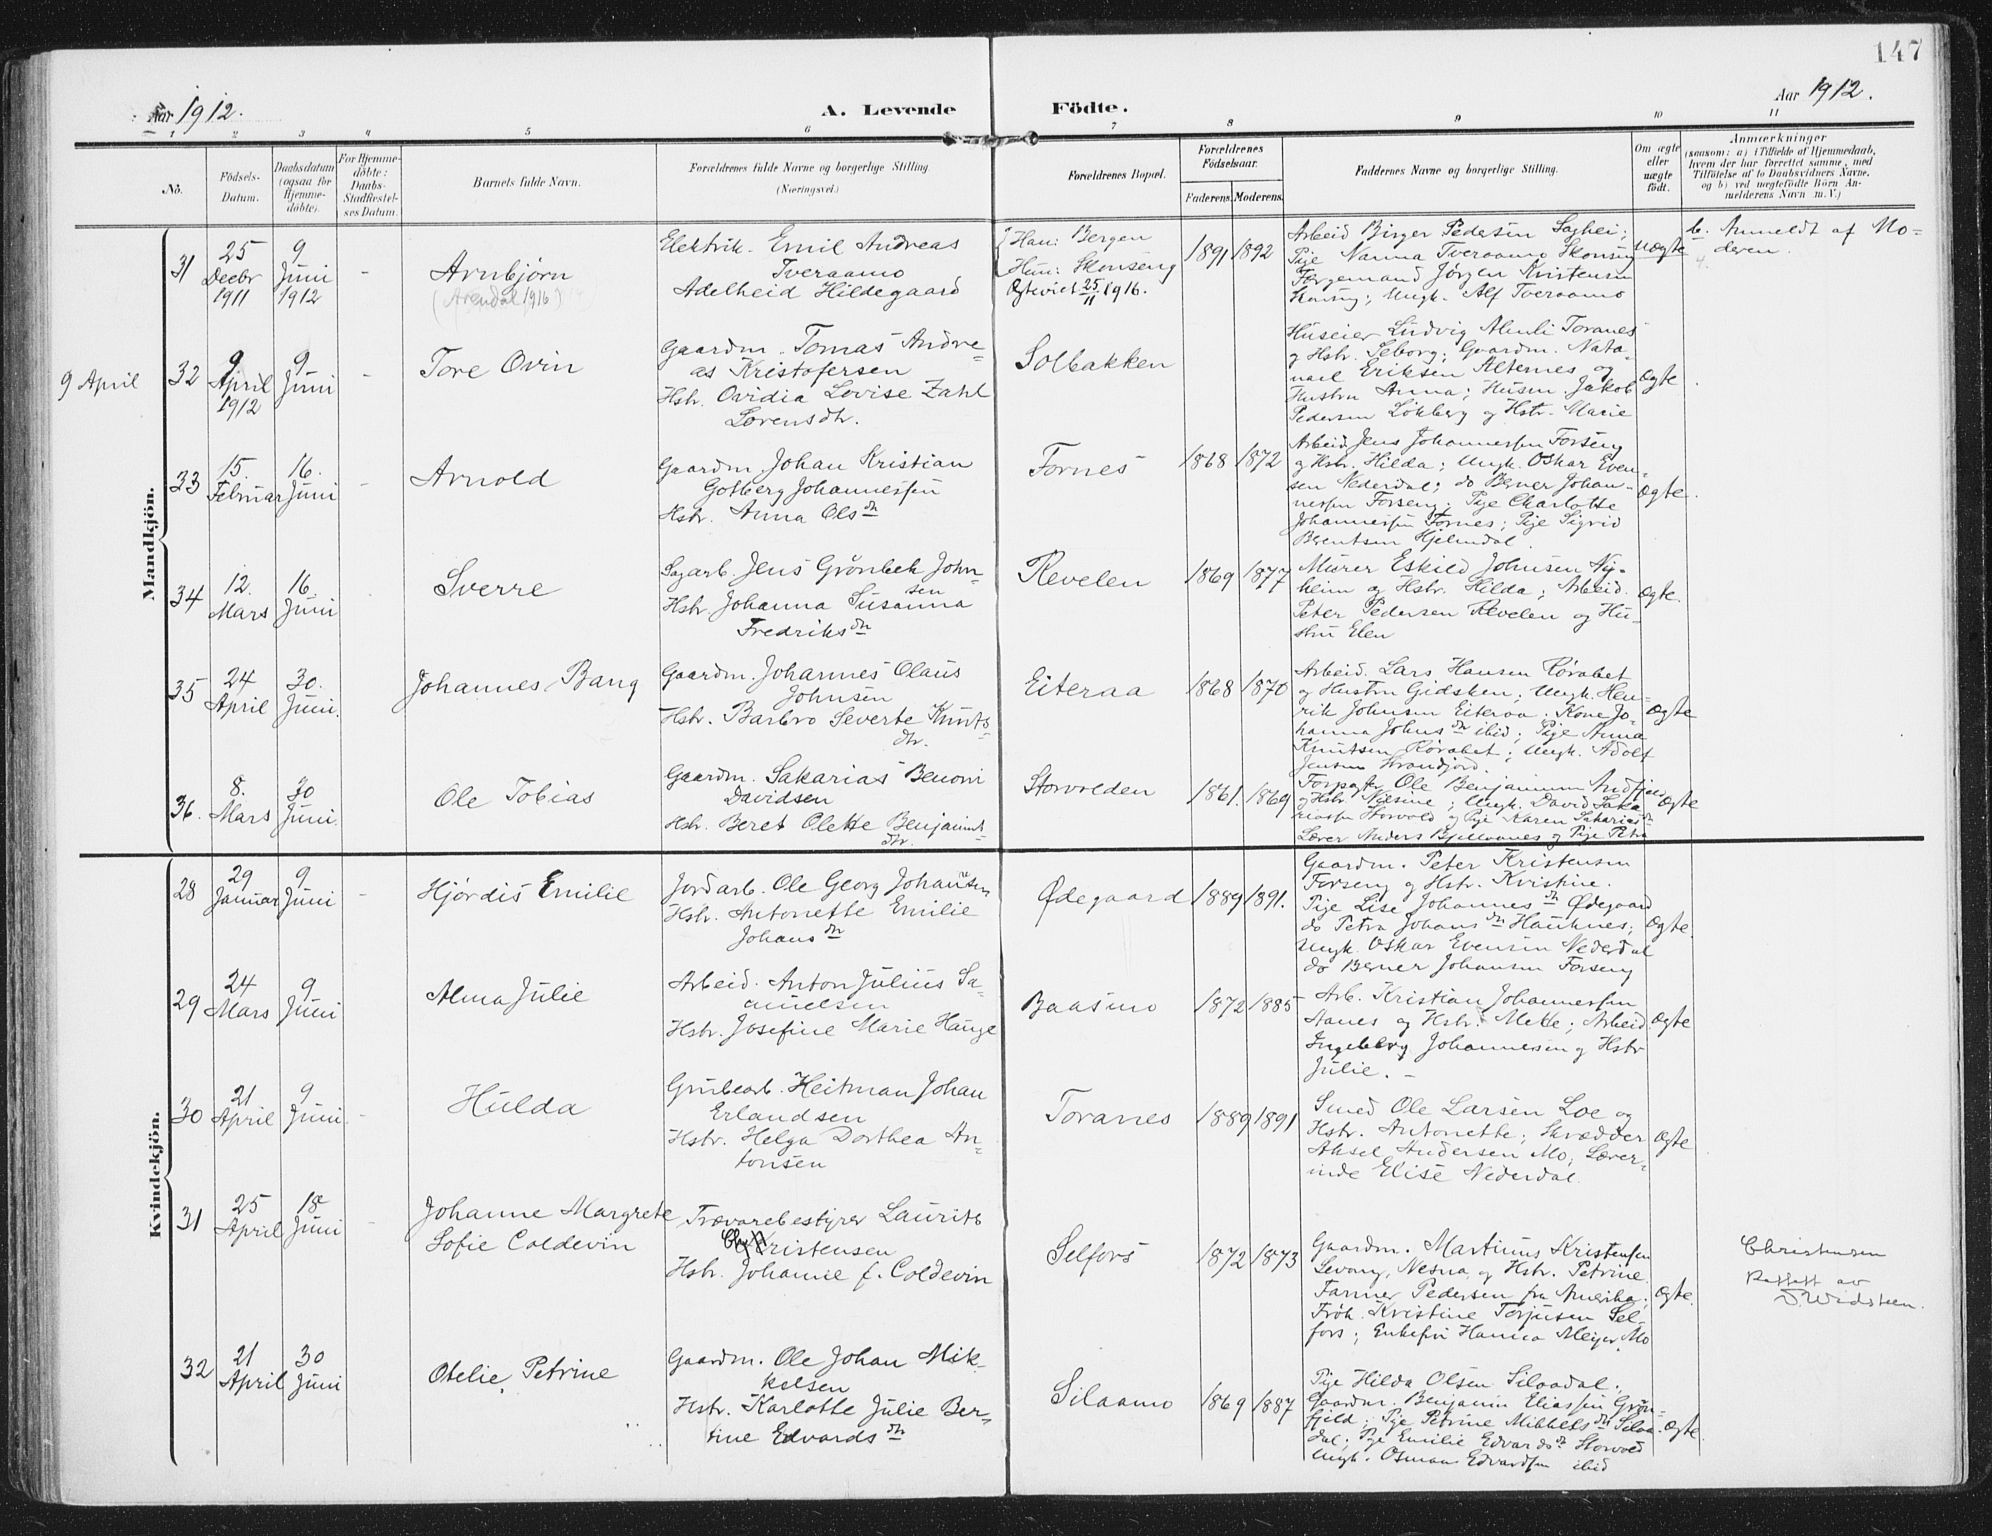 147
Aar 1912.
A. Levende Födte.
Aar 1912.
1 2 3 4 5 6 7 8 9 10 11
No.
Födsels-
Datum.
Daabsdatum
(ogsaa for
Hjemme-
döbte).
For Hjemme-
döbte:
Daabs-
Stadfæstel-
ses Datum.
Barnets fulde Navn.
Forældrenes fulde Navne og borgerlige Stilling.
(Næringsvei.)
Forældrenes Bopæl.
Forældrenes
Födselsaar.
Faderens. Moderens.
Faddernes Navne og borgerlige Stilling.
Om ægte
eller
uægte
födt.
Anmærkninger
(saasom: a) i Tilfælde af Hjemmedaab,
hvem der har forrettet samme, med
Tilföielse af to Daabsvidners Navne,
og b) ved uægtefödte Börn An-
melderens Navn m. V.)
Mandkjön.
31
25
Decbr
1911
9
Juni
1912
-
Arnbjørn
(Arendal 1916)
Elektrik. Emil Andreas
Tveraamo
Adelheid Hildegaard
Han: Bergen
Hun: Skonseng
Ogteviet 25/11 1916.
1891 1892
Arbeid Birger Pedersen
Pije Nanna Tveraamo Skonseng
Førgemand Jørgen Kristensen
Skonseng; Ungk. Alf Tveraamo
Uægte
b. Anmeldt af Mo-
deren.
9 April
32
9
April
1912
9
Juni
-
Tore Ovin
Gaardm. Tomas Andre-
as Kristofersen
Hstr. Ovidia Lovise Zahl
Lorensdtr.
Solbakken
Huseier Ludvig Almli Toranes
og Hstr. Seborg; Gaardm. Nata-
nael Eriksen Alternes og
Hustru Anna; Husm. Jakob
Pedersen Løkberg og Hstr. Marie
Ægte
33
15.
Februar
16.
Juni
-
Arnold
Gaardm Johan Kristian
Gotberg Johannessen
Hstr. Anna Olsdtr
Fornes
1868 1872
Arbeid. Jens Johannessen Forseng
og Hstr. Hilda; Ungk. Oskar Even-
sen Nederdal; do Berner Johan-
nessen Forseng; Pije Charlotte
Johannessen Fornes; Pije Sigrid
Berentsen Hjelmdal.
Ægte.
34
12.
Mars
16.
Juni
Sverre
Sagarb. Jens Grønbek John-
sen
Hstr. Johanna Susanna
Fredriksdtr
Revelen
1869 1877
Murer Eskild Johnsen Ny-
heim og Hstr. Hilda; Arbeid.
Peter Pedersen Revelen og Hu-
stru Elen
Ægte.
35
24
April
30.
Juni.
Johannes Bang
Gaardm. Johannes Olaus
Johnsen
Hstr. Barbro Severte Knuts-
dtr.
Eiteraa
1868 1870
Arbeid. Lars Hansen Rørabet
og Hustru Gidsken; Ungk. Hen-
rik Johnsen Eiteraa. Kone Jo-
hanna Johnsdtr ibid; Pije Anna
Knutsen Rørabet; Ungk. Adolf
Jensen Strandjord.
Ægte
36.
8.
Mars
30
Juni.
Ole Tobias
Gaardm. Sakarias Benoni
Davidsen
Hstr. Beret Olette Benjamins-
dtr.
Storvolden
1861. 1869
Forpagt. Ole Benjaminsen Andfjell
og Hstr. Nilsine; Ungk. David Saka-
riassen Storvold og Pije Karen Sakariasdtr
Lærer Anders Bjellaanes og Pije Petra
Ægte
Kvindekjön.
28
29
Januar
9
Juni
-
Hjørdis Emilie
Jordarb. Ole Georg Johansen
Hstr. Antonette Emilie
Johansdtr
Ødegaard
1889 1891.
Gaardm. Peter Kristensen
Forseng og Hstr. Kristine.
Pije Lise Johannesdtr Ødegaard
do Petra Johansdtr Hauknes;
Ungk. Oskar Evensen Nederdal
do Berner Johansen Forseng
Ægte.
29
24
Mars
9
Juni
Alma Julie
Arbeid. Anton Julius Sa-
muelsen
Hstr. Josefine Marie Hauge
Baasmo
1872 1885
Arb. Kristian Johannessen
Aanes og Hstr. Mette; Arbeid.
Ingeberg Johannesen og Hstr
Julie. -
Ægte
30
21
April
9
Juni
-
Hulda
Grubearb. Heitman Johan
Erlandsen
Hstr. Helga Dorthea An-
tonsen
Toranes
1889 1891
Smed Ole Larsen Loe og
Hstr. Antonette; Skrædder
Aksel Andersen Mo; Lærer-
inde Elise Nederdal.
Ægte
31
25
April
18
Juni
-
Johanne Margrete
Sofie Coldevin
Trævarebestyrer Laurits
Kristensen
Hstr. Johanne f. Coldevin
Selfors
1872 1873
Gaardm. Martinus Kristensen
Levang, Nesna, og Hstr. Petrine.
Farmer Pedersen fra Amerika;
Frøk. Kristine Torjusen Sel-
fors; Enkefru Hanna Meyer, Mo
Ægte.
Christensen
Rettet av
Widsteen.
32
21
April
30
Juni
Otelie Petrine
Gaardm. Ole Johan Mik-
kelsen
Hstr. Karlotte Julie Ber-
tine Edvardsdtr
Silaamo
1869 1887
Pije Hilda Olsen Silaadal;
Gaardm. Benjamin Eliassen Grøn-
fjeld; Pije Petrine Mikkelsdtr Silaa-
dal; Pije Emilie Edvardsdtr Storvold
Ungk. Osman Edvardsen ibid
Ægte.